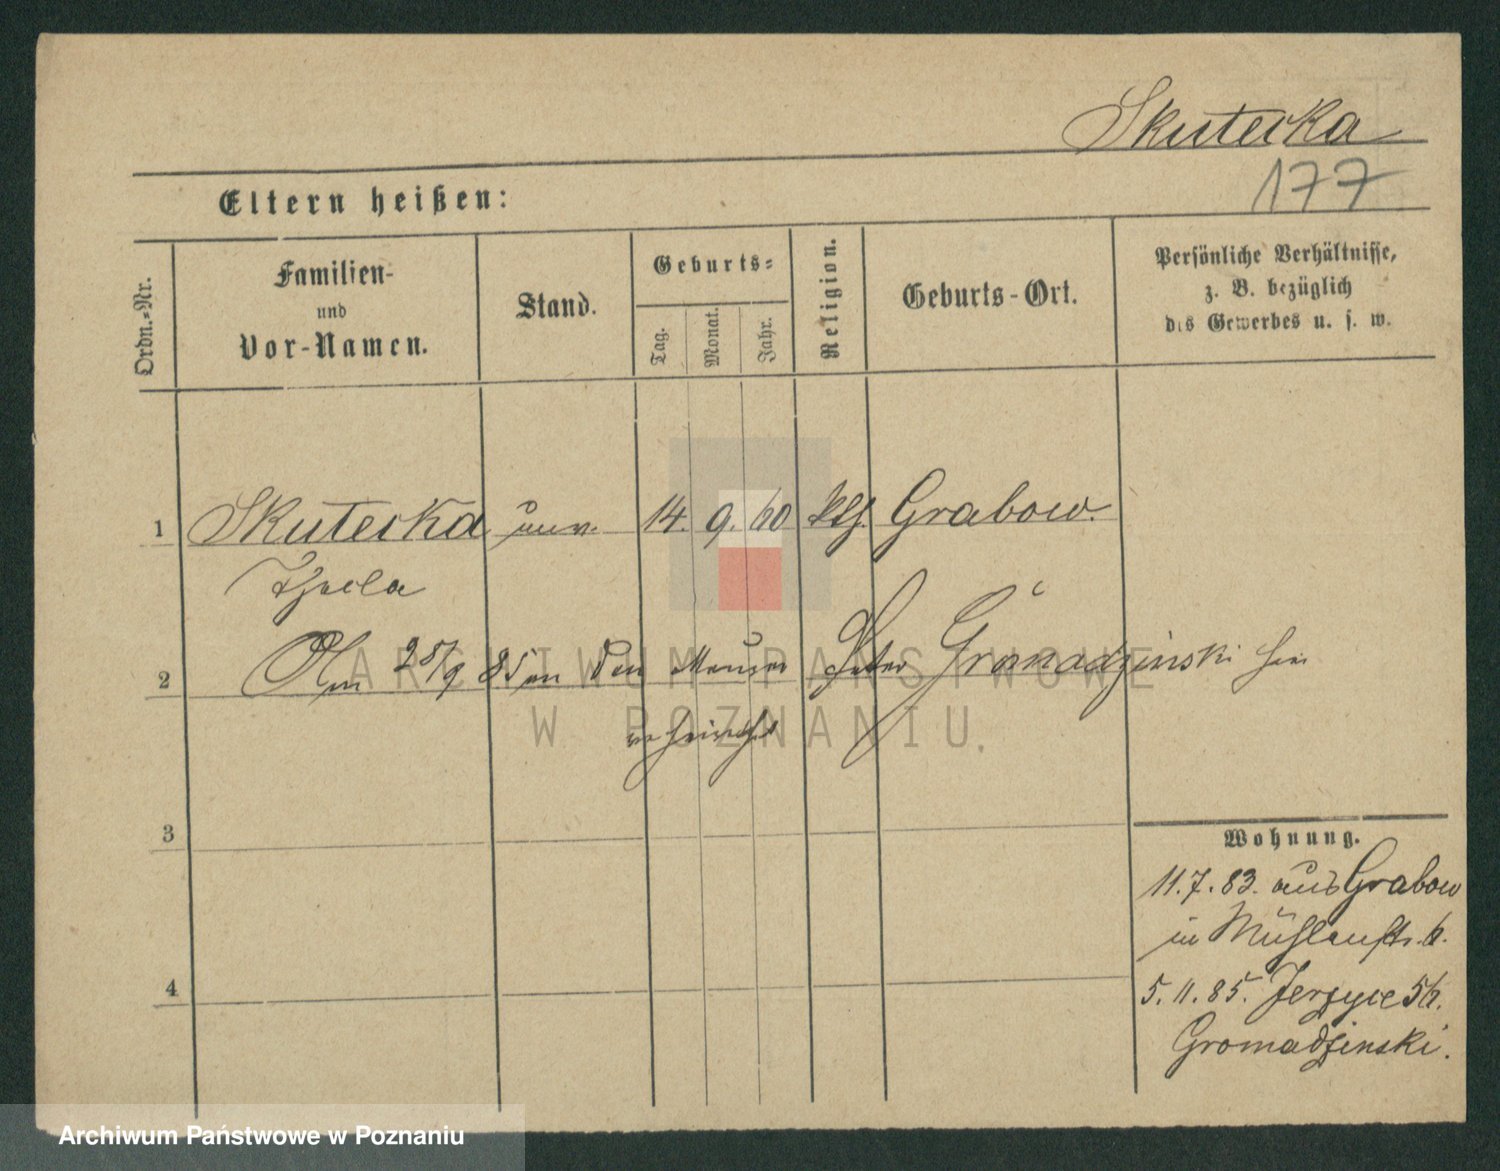 Skutecka
177
Eltern heißen:
Ordn.-Nr.
Familien-
und
Vor-Namen.
Stand.
Geburts-
Tag.
Monat.
Jahr.
Religion.
Geburts-Ort.
Persönliche Verhältnisse,
z. B. bezüglich
des Gewerbes u. s. w.
1 Skutecka unv. 14. 9. 60 kth. Grabow.
Thecla
2 Am 28/9 85 an den Maurer Peter Gromadzinski hier
verheirathet
3
4
Wohnung.
11.7.83. aus Grabow
in Mühlenstr. 6.
5.11.85. Jerzyce 56.
Gromadzinski.
ARCHIWUM PAŃSTWOWE
W POZNANIU.
Archiwum Państwowe w Poznaniu